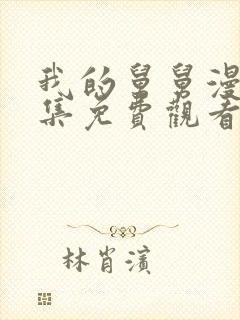 我的舅舅漫
集免費觀看
林肖濱